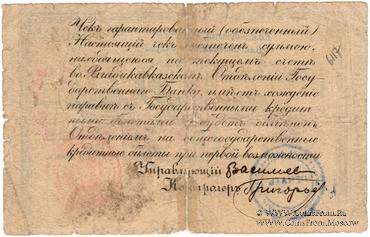 Чекъ гарантированный (обезпеченный)
Настоящій чекъ обезпеченъ суммою,
находящеюся на текущемъ счетѣ
во Владикавказскомъ Отдѣленіи Госу-
дарственнаго Банка, имѣетъ хожденіе
наравнѣ съ Государственными кредит-
ными билетами
Отдѣленіемъ на общегосударственные
кредитные билеты при первой возможности
Управляющій Васильев
Контролеръ Григоров
© CoinsFrom.Ru
© CoinsFromMoscow.Ru